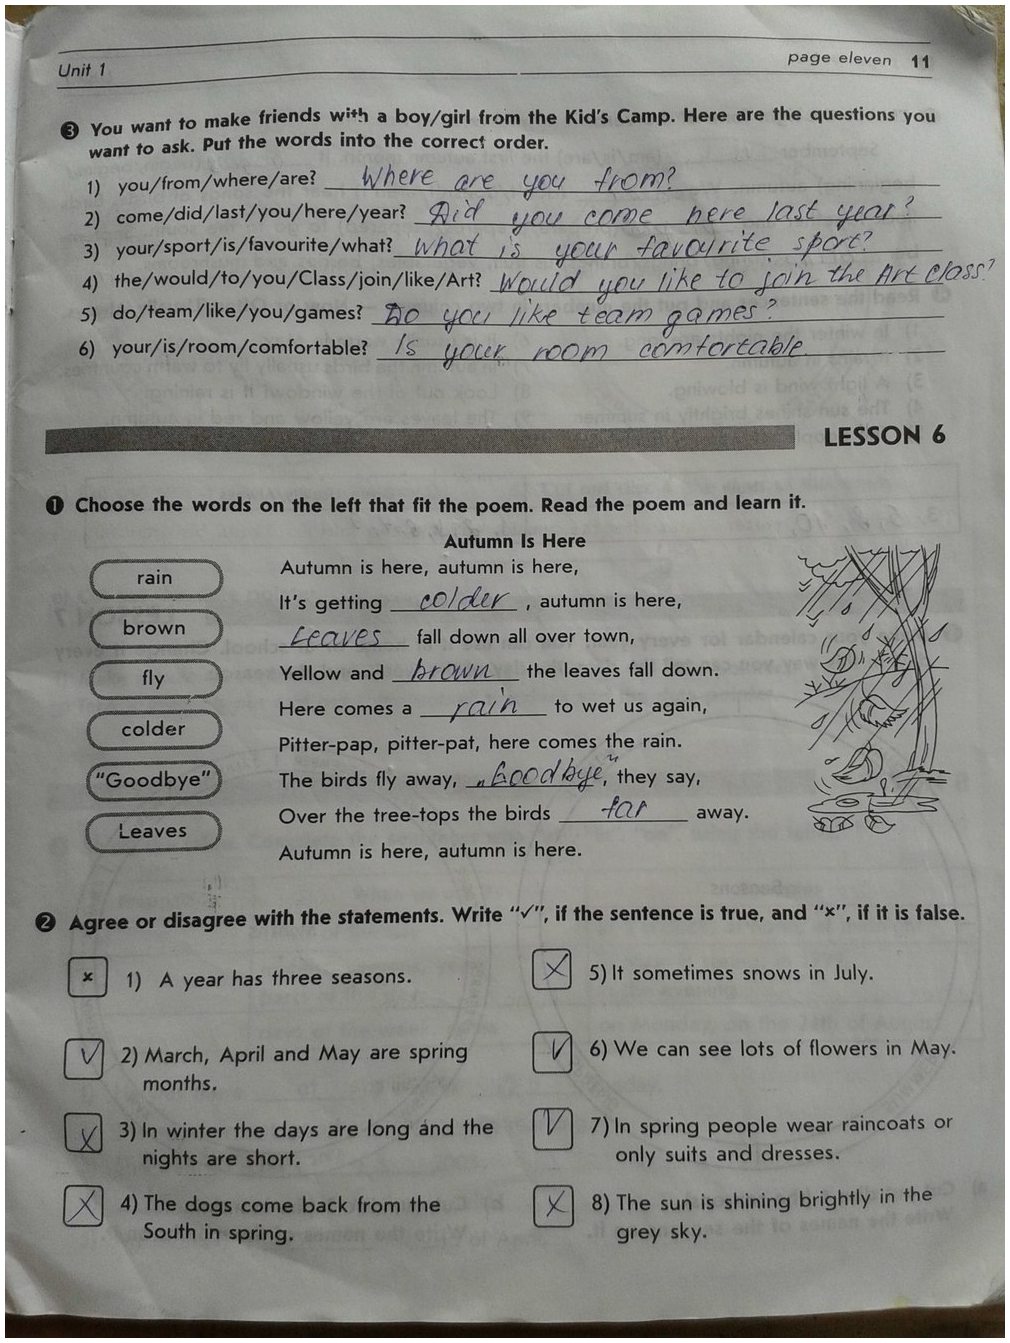 Unit 1
page eleven 11
3 You want to make friends with a boy/girl from the Kid's Camp. Here are the questions you
want to ask. Put the words into the correct order.
1) you/from/where/are? Where are you from?
2) come/did/last/you/here/year? Did you come here last year?
3) your/sport/is/favourite/what? What is your favourite sport?
4) the/would/to/you/Class/join/like/Art? Would you like to join the Art Class?
5) do/team/like/you/games? Do you like team games?
6) your/is/room/comfortable? Is your room comfortable
LESSON 6
1 Choose the words on the left that fit the poem. Read the poem and learn it.
rain
brown
fly
colder
"Goodbye"
Leaves
Autumn Is Here
Autumn is here, autumn is here,
It's getting colder, autumn is here,
Leaves fall down all over town,
Yellow and brown the leaves fall down.
Here comes a rain to wet us again,
Pitter-pap, pitter-pat, here comes the rain.
The birds fly away, „Goodbye", they say,
Over the tree-tops the birds far away.
Autumn is here, autumn is here.
2 Agree or disagree with the statements. Write "✓", if the sentence is true, and "×", if it is false.
× 1) A year has three seasons.
V 2) March, April and May are spring
months.
X 3) In winter the days are long and the
nights are short.
X 4) The dogs come back from the
South in spring.
X 5) It sometimes snows in July.
V 6) We can see lots of flowers in May.
V 7) In spring people wear raincoats or
only suits and dresses.
X 8) The sun is shining brightly in the
grey sky.